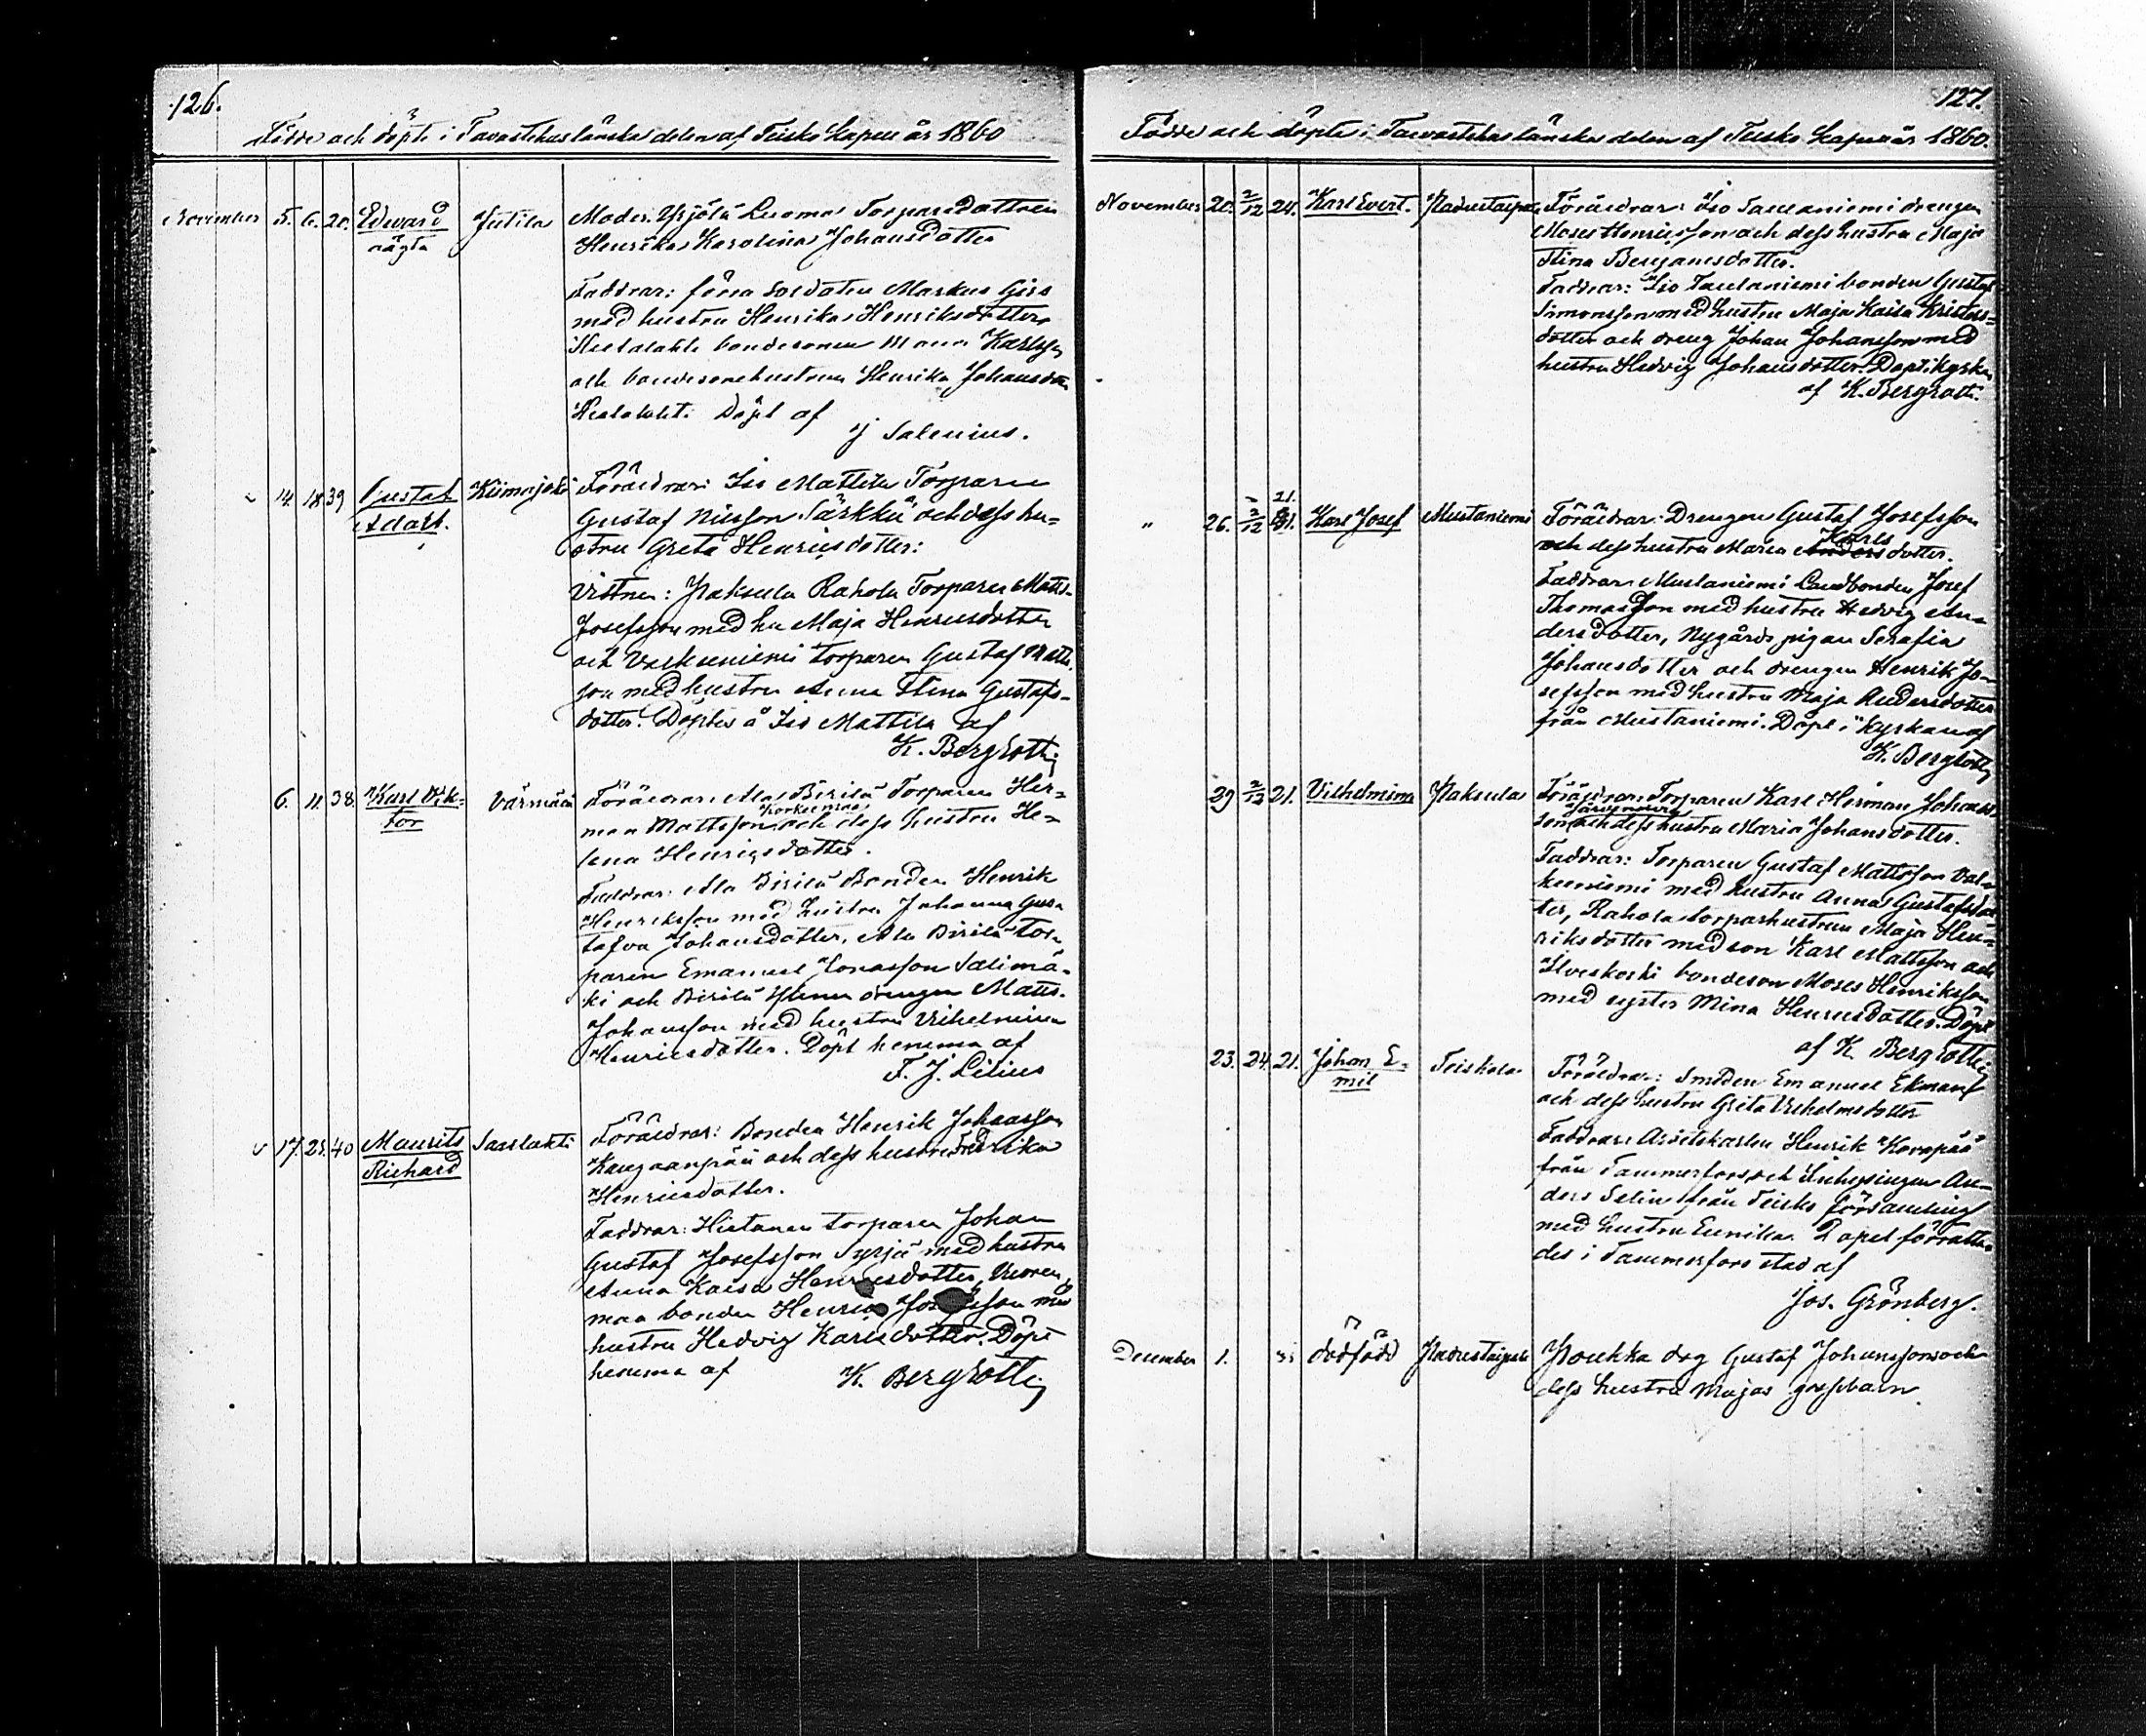 126.
Födde och döpte i Tavastehus länska delen af Teisko Kapell år 1860
November 5. 6. 20. Edward Jutila Moder: Yrjölä Luomas Torparedottren
oägta Henrika Karolina Johansdotter
Faddrar: förra Soldaten Markus Girs
med hustru Henrika Henriksdotter,
bondesonen Karlsson
och bondesonehustrun Henrika Johansdotter
Döpt af
J Salenius.
14. 18 39 Gustaf Kiimajoki Föräldrar: Iso Mattila Torparen
Adolf. Gustaf Nilsson Särkkä och dess hu=
stru Greta Henricsdotter:
Vittnen: Paksula Rahola Torparen Matts
Josefsson med hu Maja Henricsdotter
och Valkeeniemi torparen Gustaf Matts
son med hustru Anna Stina Gustafs=
dotter. Döptes å Iso Mattila af
K. Bergroth
6. 11. 38. Karl Vik= Värmälä Föräldrar: Ala Birilä Torparen Her=
tor man Mattsson och dess hustru He=
lena Henricsdotter.
Faddrar: Ala Birilä Bonden Henrik
Henriksson med hustru Johanna Gus=
tafva Johansdotter, Ala Birilä Tor=
paren Emanuel Jonasson Salimä=
ki och Birilä drengen Matts
Johansson med hustru Vilhelmina
Henricsdotter. Döpt hemma af
F. J. Lilius
17. 25. 40 Maurits Saarlahti Föräldrar: Bonden Henrik Johansson
Richard Kangaanpää och dess hustru Fredrika
Henricsdotter.
Faddrar: Hietanen torparen Johan
Gustaf Josefsson Syrjä med hustru
Anna Kaisa Henricsdotter, Vuoren=
maa bonden Henric Josefsson med
hustru Hedvig Karlsdotter. Döpt
hemma af K. Bergroth
127.
Födde och döpte i Tavastehus länska delen af Teisko Kapell år 1860.
November 20. 2/12 24. Karl Evert. Padustaipale Föräldrar: Iso Saulaniemi drengen
Moses Henricsson och dess hustru Maja
Stina Benjamsdotter.
Faddrar: Iso Saulaniemi bonden Gustaf
Simonsson med hustru Maja Kaisa Kristers=
dotter och dreng Johan Johansson med
hustru Hedvig Johansdotter. Döpt i kyrkan
af K. Bergroth.
" 26. 2/12 21. Karl Josef Mustaniemi Föräldrar: Drengen Gustaf Josefsson
Karls
och dess hustru Maria Anders dotter.
Faddrar: Mustaniemi Landbonden Josef
Thomasson med hustru Hedvig An=
dersdotter, Nygårds pigan Serafia
Johansdotter och drengen Henrik Jo=
sefsson med hustru Maja Andersdotter
från Mustaniemi. Döpt i kyrkan af
K. Bergroth
29 2/12 21. Vilhelmina Paksula Föräldrar: Torparen Karl Herman Johans
son och dess hustru Maria Johansdotter.
Faddrar: Torparen Gustaf Mattsson Val=
keeniemi med hustru Anna Gustafsdot
ter, Rahola torparhustrun Maja Hen=
riksdotter med son Karl Mattsson och
Ilveskoski bondeson Moses Henriksson
med syster Mina Henricsdotter. Döpt
af K. Bergroth
23. 24. 21. Johan E= Teiskola Föräldrar: Smeden Emanuel Ekman
mil och dess hustru Greta Vilhelmsdotter
Faddrar: Arbetskarlen Henrik Korapää
från Tammerfors och Inhysingen An=
ders Selin från Teisko församling
med hustru Eenika. Dopet förrätta
des i Tammerfors stad af
Jos. Grönberg.
December 1. 35 dödfödd Padustaipale Poukka drg Gustaf Johanssons och
dess hustru Majas gossebarn